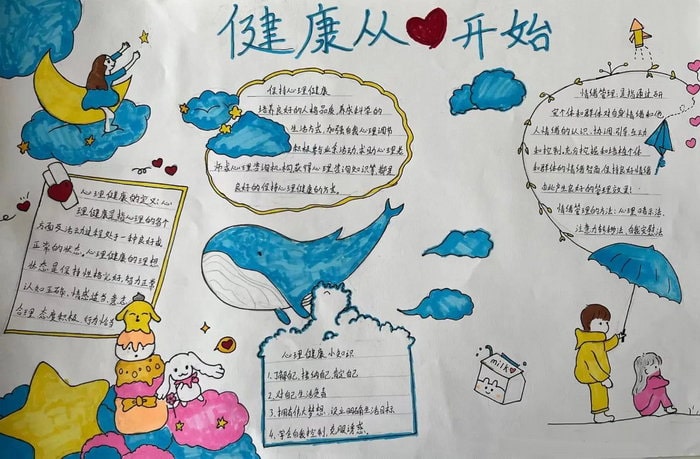 健康从 开始
保持心理健康
培养良好的人格品质,养成科学的
生活方式,加强自我心理调节
积极参与业余活动,求助心理老
师或心理咨询机构获得心理咨询知识等,都是
良好的保持心理健康的方式。
情绪管理,是指通过研
究个体和群体对自身情绪和他
人情绪的认识、协调、引导、互动
和控制,充分挖掘和培植个体
和群体的情绪智商,保持良好情绪
由此产生良好的管理效果。
情绪管理的方法:心理暗示法、
注意力转移法、自我安慰法
心理健康的定义:心
理健康是指心理的各个
方面及活动过程处于一种良好或
正常的状态。心理健康的理想
状态是保持性格完好,智力正常
认知正确,情感适当,意志
合理,态度积极,行为恰当
心理健康小知识
1.了解自己,接纳自己,肯定自己
2.对自己生活负责
3.拥有伟大梦想,设立明确生活目标
4.学会自我控制,克服诱惑。
milk